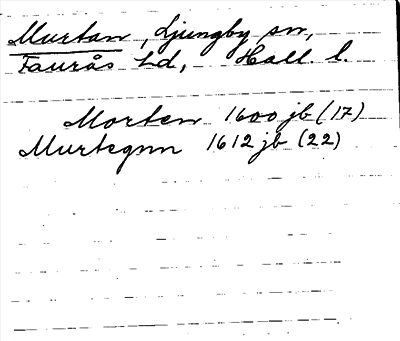 Murtan, Ljungby sn,
Faurås hd, Hall. l.
Morten 1600 jb (17)
Murtegnn 1612 jb (22)